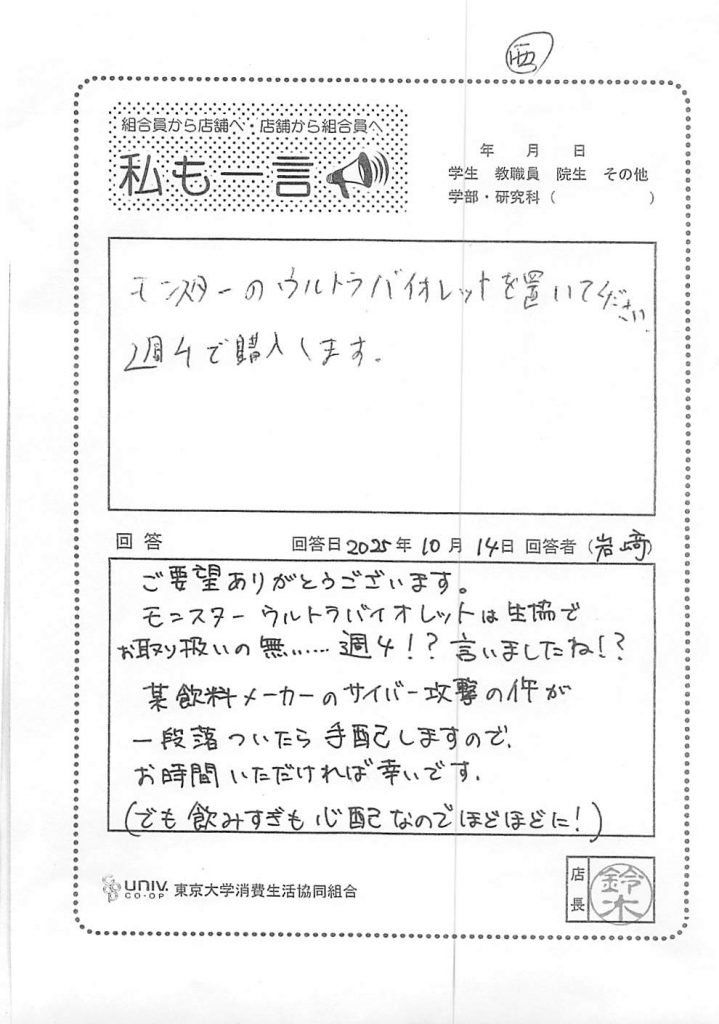 西
組合員から店舗へ・店舗から組合員へ
私も一言
年 月 日
学生 教職員 院生 その他
学部・研究科（ ）
モンスターのウルトラバイオレットを置いてください
週4で購入します。
回答 回答日2025年10月14日 回答者（岩﨑）
ご要望ありがとうございます。
モンスター ウルトラバイオレットは生協で
お取り扱いの無い……週4!?言いましたね!?
某飲料メーカーのサイバー攻撃の件が
一段落ついたら手配しますので、
お時間いただければ幸いです。
(でも飲みすぎも心配なのでほどほどに!)
UNIV. CO-OP 東京大学消費生活協同組合
店長 鈴木